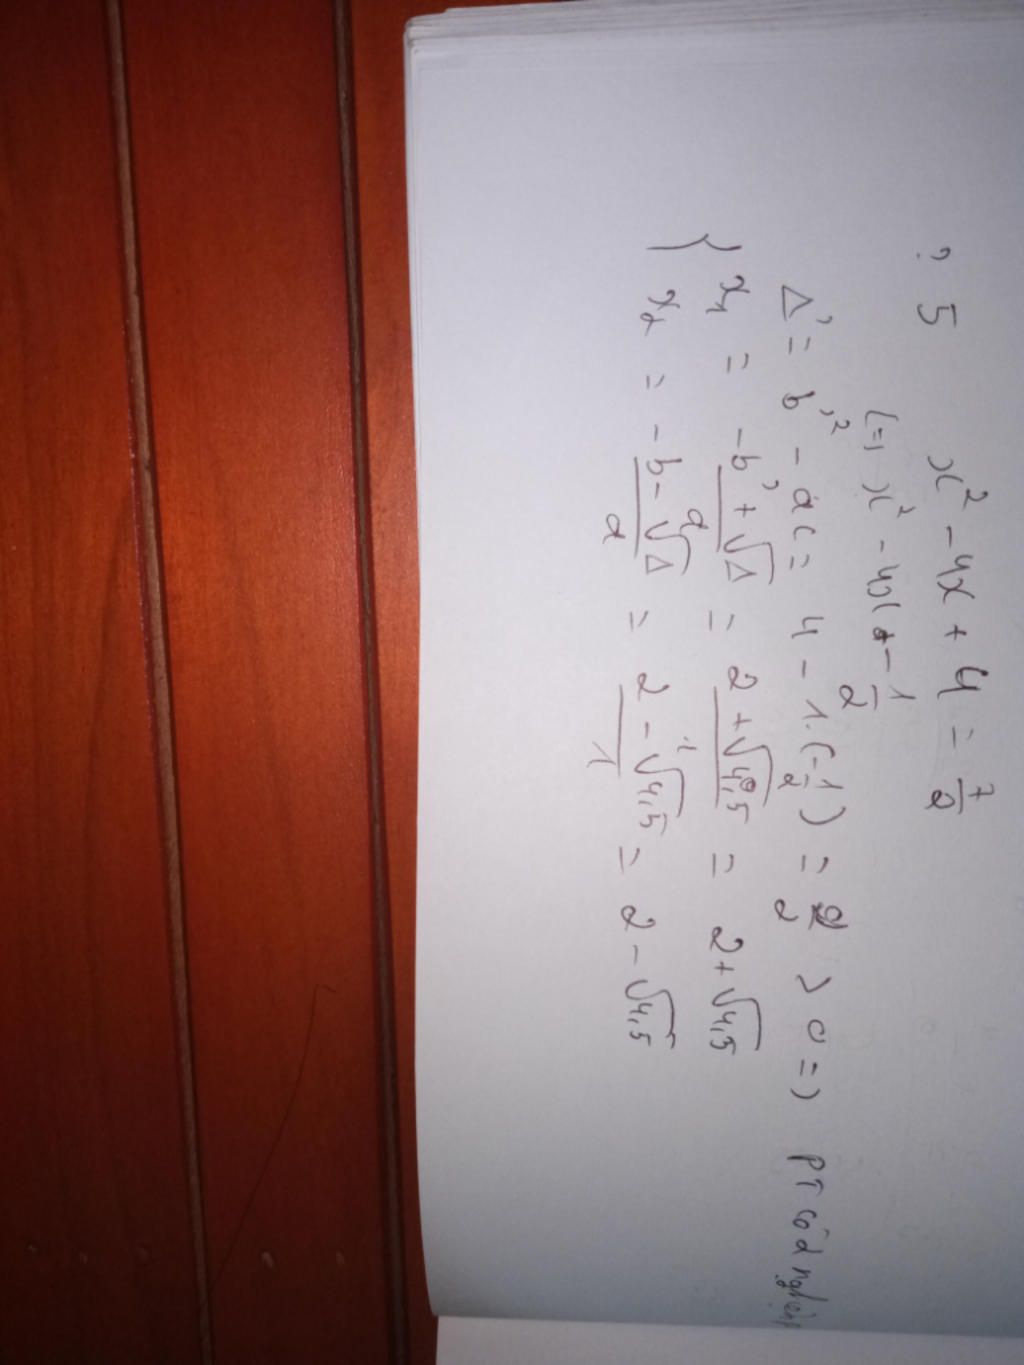 ? 5 x² - 4x + 4 = 7/2
(=) x² - 4x + -1/2
Δ' = b'² - ac = 4 - 1.(-1/2) = 9/2 > 0 => PT có 2 nghiệm
x₁ = -b' + √Δ / a = 2 + √4,5 / 1 = 2 + √4,5
x₂ = -b - √Δ / a = 2 - √4,5 / 1 = 2 - √4,5